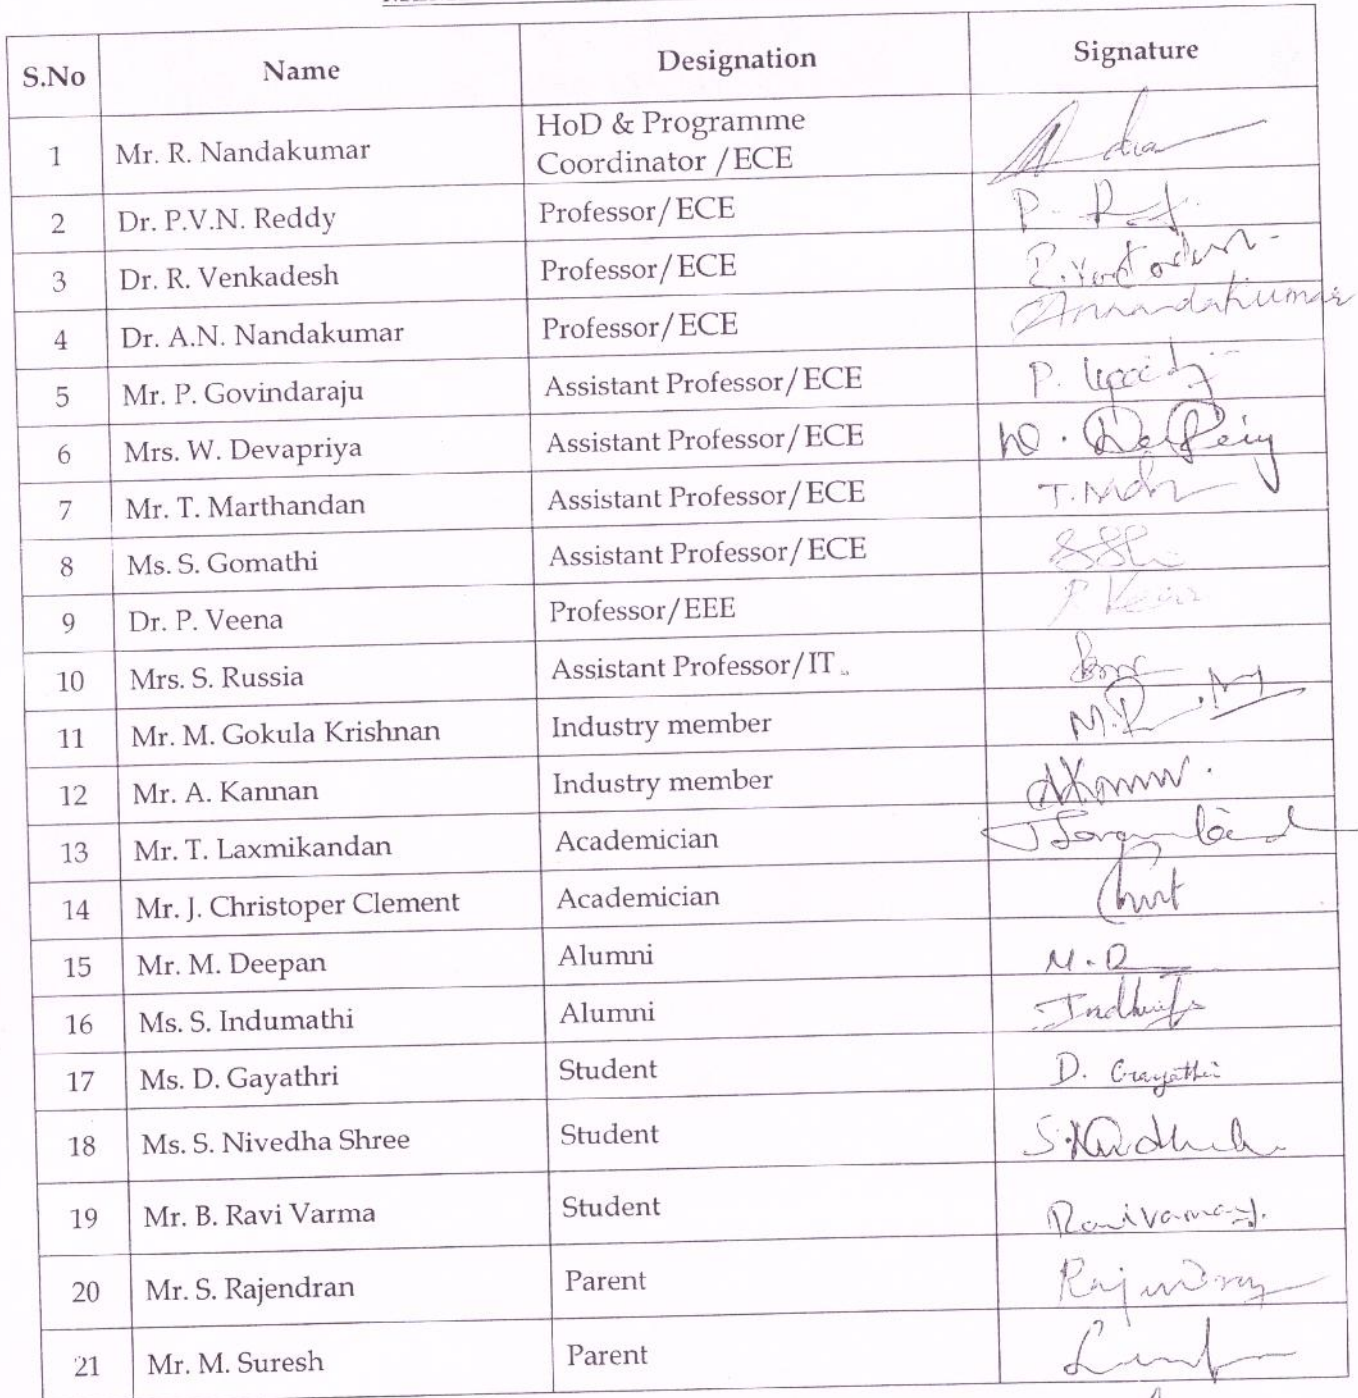 S.No Name Designation Signature
1 Mr. R. Nandakumar HoD & Programme
Coordinator /ECE
2 Dr. P.V.N. Reddy Professor/ECE
3 Dr. R. Venkadesh Professor/ECE
4 Dr. A.N. Nandakumar Professor/ECE
5 Mr. P. Govindaraju Assistant Professor/ECE P.
6 Mrs. W. Devapriya Assistant Professor/ECE W.
7 Mr. T. Marthandan Assistant Professor/ECE T.
8 Ms. S. Gomathi Assistant Professor/ECE
9 Dr. P. Veena Professor/EEE
10 Mrs. S. Russia Assistant Professor/IT
11 Mr. M. Gokula Krishnan Industry member
12 Mr. A. Kannan Industry member
13 Mr. T. Laxmikandan Academician
14 Mr. J. Christoper Clement Academician
15 Mr. M. Deepan Alumni M.D
16 Ms. S. Indumathi Alumni
17 Ms. D. Gayathri Student D. Gayathri
18 Ms. S. Nivedha Shree Student
19 Mr. B. Ravi Varma Student
20 Mr. S. Rajendran Parent
21 Mr. M. Suresh Parent